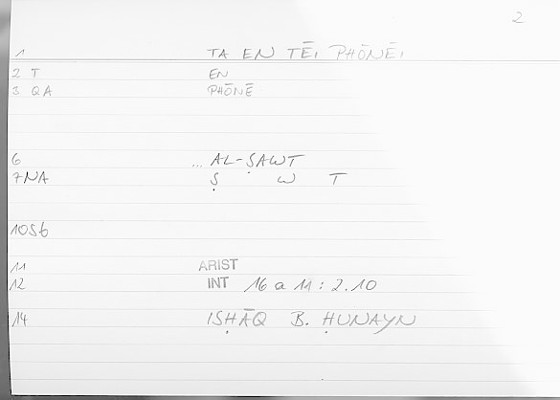 2
1 TA EN TĒI PHŌNĒI
2 T EN
3 QA PHŌNĒ
6 ... AL-ṢAWT
7NA Ṣ W T
10Sb
11 ARIST
12 INT 16 a 11 : 2.10
14 ISḤĀQ B. ḤUNAYN